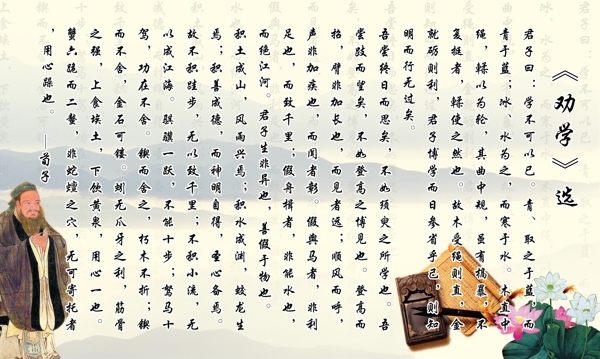 《劝学》选
君子曰：学不可以已。青、取之于蓝，而
青于蓝；冰、水为之，而寒于水。木直中
绳，輮以为轮，其曲中规，虽有槁暴，不
复挺者，輮使之然也。故木受绳则直，金
就砺则利，君子博学而日参省乎己，则知
明而行无过矣。
吾尝终日而思矣，不如须臾之所学也。吾
尝跂而望矣，不如登高之博见也。登高而
招，臂非加长也，而见者远；顺风而呼，
声非加疾也，而闻者彰。假舆马者，非利
足也，而致千里；假舟楫者，非能水也，
而绝江河。君子生非异也，善假于物也。
积土成山，风雨兴焉；积水成渊，蛟龙生
焉；积善成德，而神明自得，圣心备焉。
故不积跬步，无以致千里；不积小流，无
以成江海。骐骥一跃，不能十步；驽马十
驾，功在不舍。锲而舍之，朽木不折；锲
而不舍，金石可镂。蚓无爪牙之利，筋骨
之强，上食埃土，下饮黄泉，用心一也。
蟹六跪而二螯，非蛇蟺之穴，无可寄托者
，用心躁也。——荀子